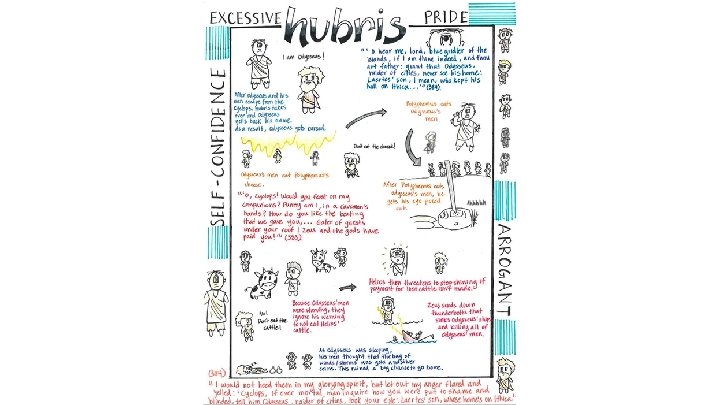 EXCESSIVE hubris PRIDE
SELF-CONFIDENCE
ARROGANT
I am Odysseus!
"O hear me, lord, blue girdler of the
islands, if I am thine indeed, and thou
art father: grant that Odysseus,
raider of cities, never see his home:
Laertes' son, I mean, who kept his
hall on Ithaca..." (389)
After Odysseus and his
men escape from the
cyclops, hubris takes
over and Odysseus
yells back his name.
As a result, Odysseus gets cursed.
Polyphemus eats
Odysseus's
men.
Don't eat the cheese!
Odysseus's men eat Polyphemus's
cheese.
After Polyphemus eats
Odysseus's men, he
gets his eye poked
out.
Ahhhhh
"O, cyclops! Would you feast on my
companions? Puny am I, in a caveman's
hands? How do you like the beating
that we gave you,... Eater of guests
under your roof! Zeus and the gods have
paid you!"
Helios then threatens to stop shining if
payment for lost cattle isn't made.
Because Odysseus' men
were starving, they
ignore his warning
to not eat Helios'
cattle.
Yo!
Don't eat the
cattle!
Zeus sends down
thunderbolts that
sinks Odysseus' ship
and killing all of
Odysseus' men.
As Odysseus was sleeping,
his men thought that the bag of
winds/storms was gold and silver
coins. This ruined a big chance to go home.
"I would not heed them in my glorying spirit, but let out my anger flared and
yelled: 'Cyclops, if ever mortal man inquire how you were put to shame and
blinded, tell him Odysseus, raider of cities, took your eye: Laertes' son, whose home's on Ithaca'"